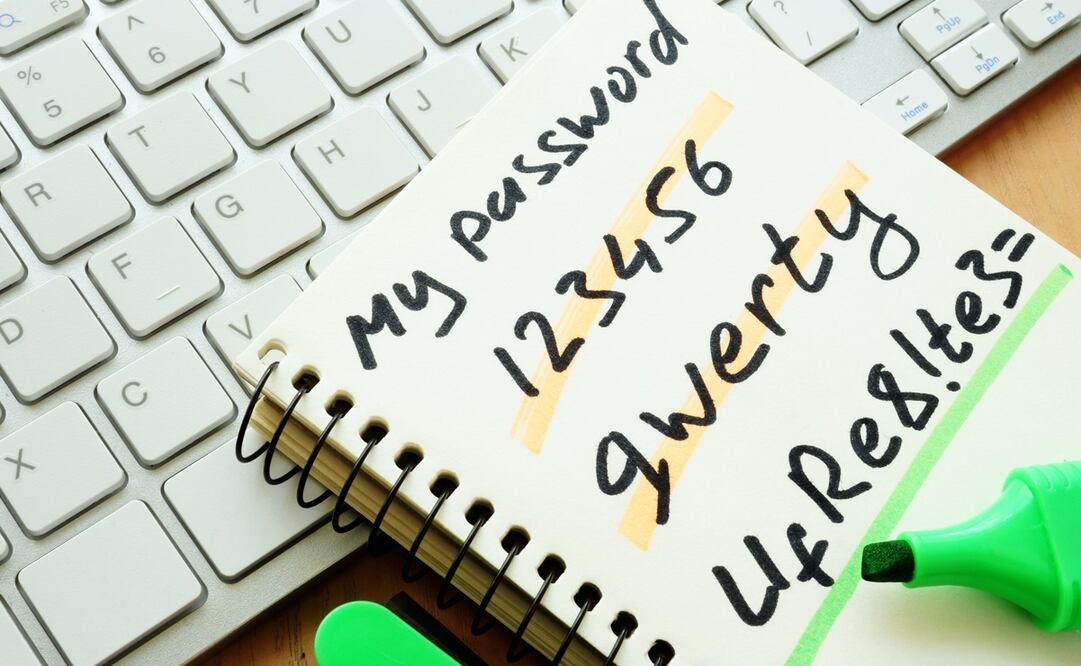 My password
123456
qwerty
UfRe8!te3=
F5
^
6
7
U
K
?
/
PgUp
End
PgDn
Home
%
5
Y
J
T
H
R
G
F
V
D
C
X